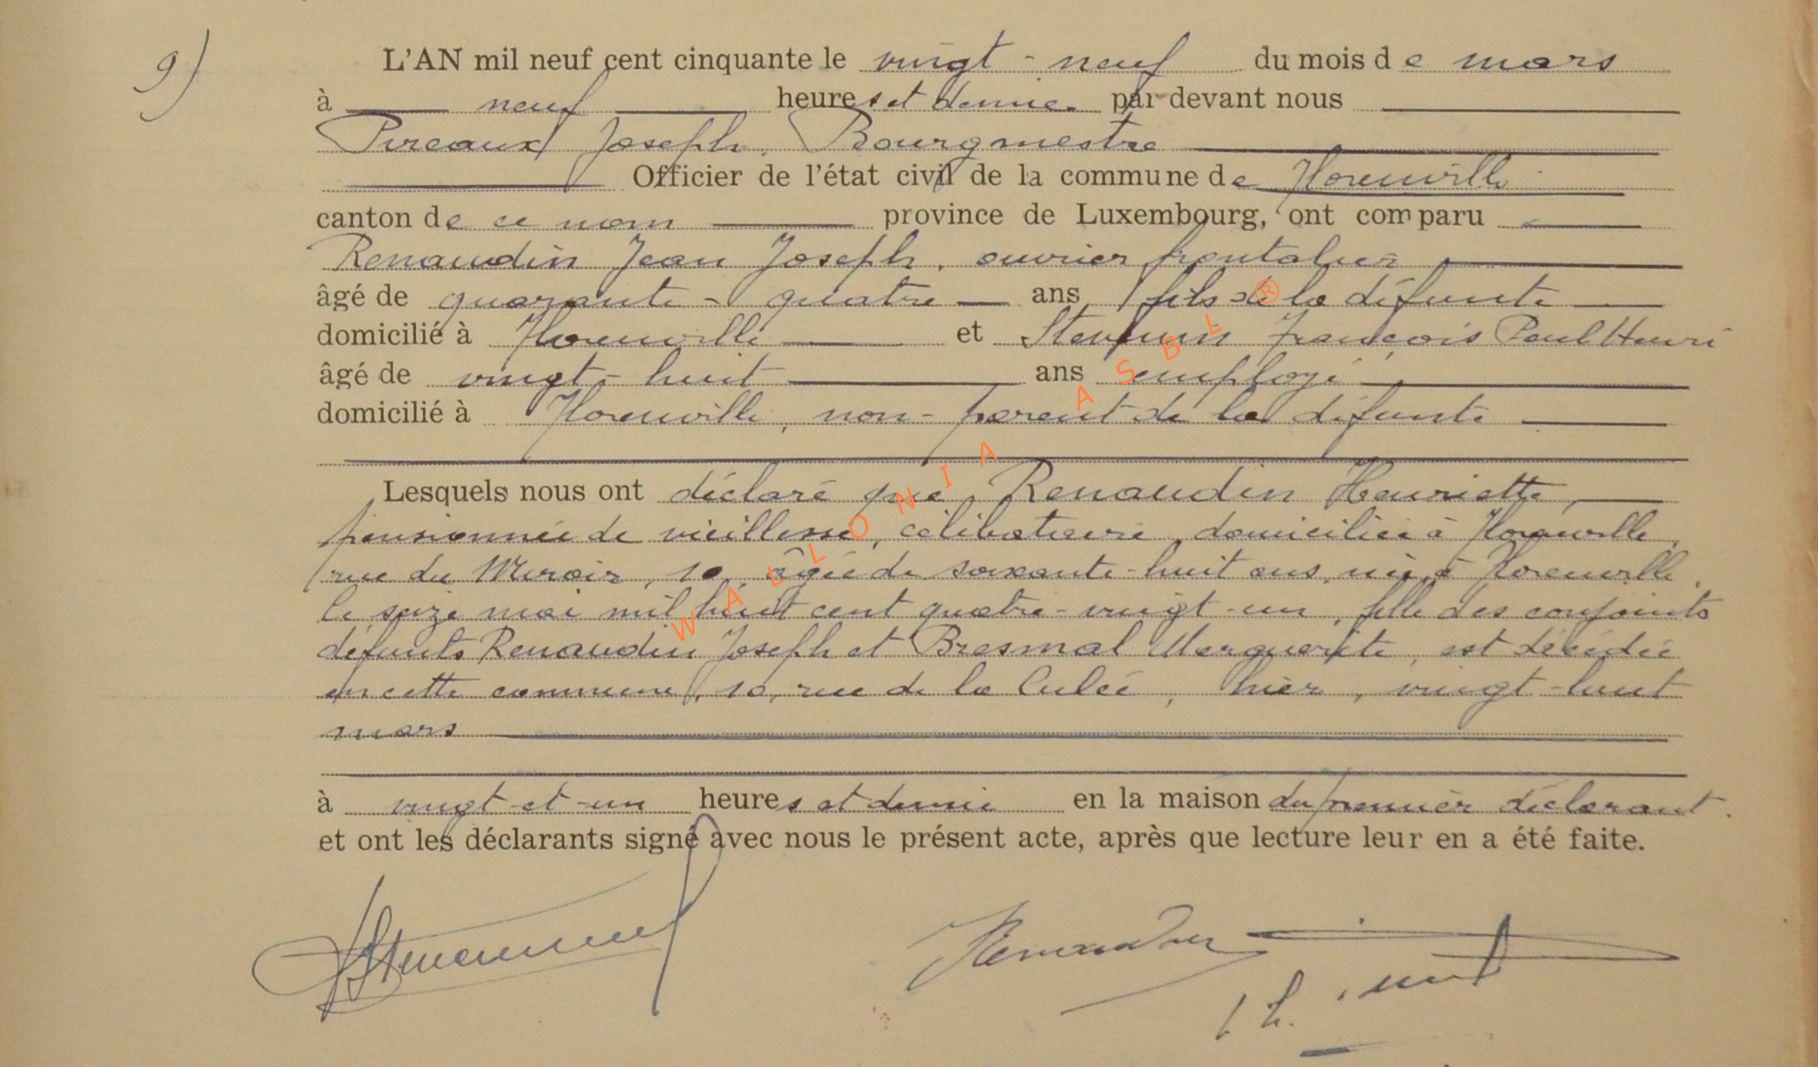 9)
L'AN mil neuf cent cinquante le vingt-neuf du mois de mars
à neuf heures et demie par devant nous
Pireaux Joseph, Bourgmestre
Officier de l'état civil de la commune de Florenville
canton de ce nom province de Luxembourg, ont comparu
Renaudin Jean Joseph, ouvrier frontalier
âgé de quarante-quatre ans fils de la défunte
domicilié à Florenville et François Paul Henri
âgé de vingt-huit ans employé
domicilié à Florenville, non-parent de la défunte
Lesquels nous ont déclaré que Renaudin Henriette,
pensionnée de vieillesse, célibataire, domiciliée à Florenville,
rue du Miroir, 10, âgée de soixante-huit ans, née à Florenville,
le seize mai mil huit cent quatre-vingt-un, fille des conjoints
défunts Renaudin Joseph et Bresmal Marguerite, est décédée
en cette commune, 10, rue de la Culée, hier, vingt-huit
mars
à vingt-et-un heures et demie en la maison du premier déclarant.
et ont les déclarants signé avec nous le présent acte, après que lecture leur en a été faite.
Renaudin
WALLONIA ASBL ®